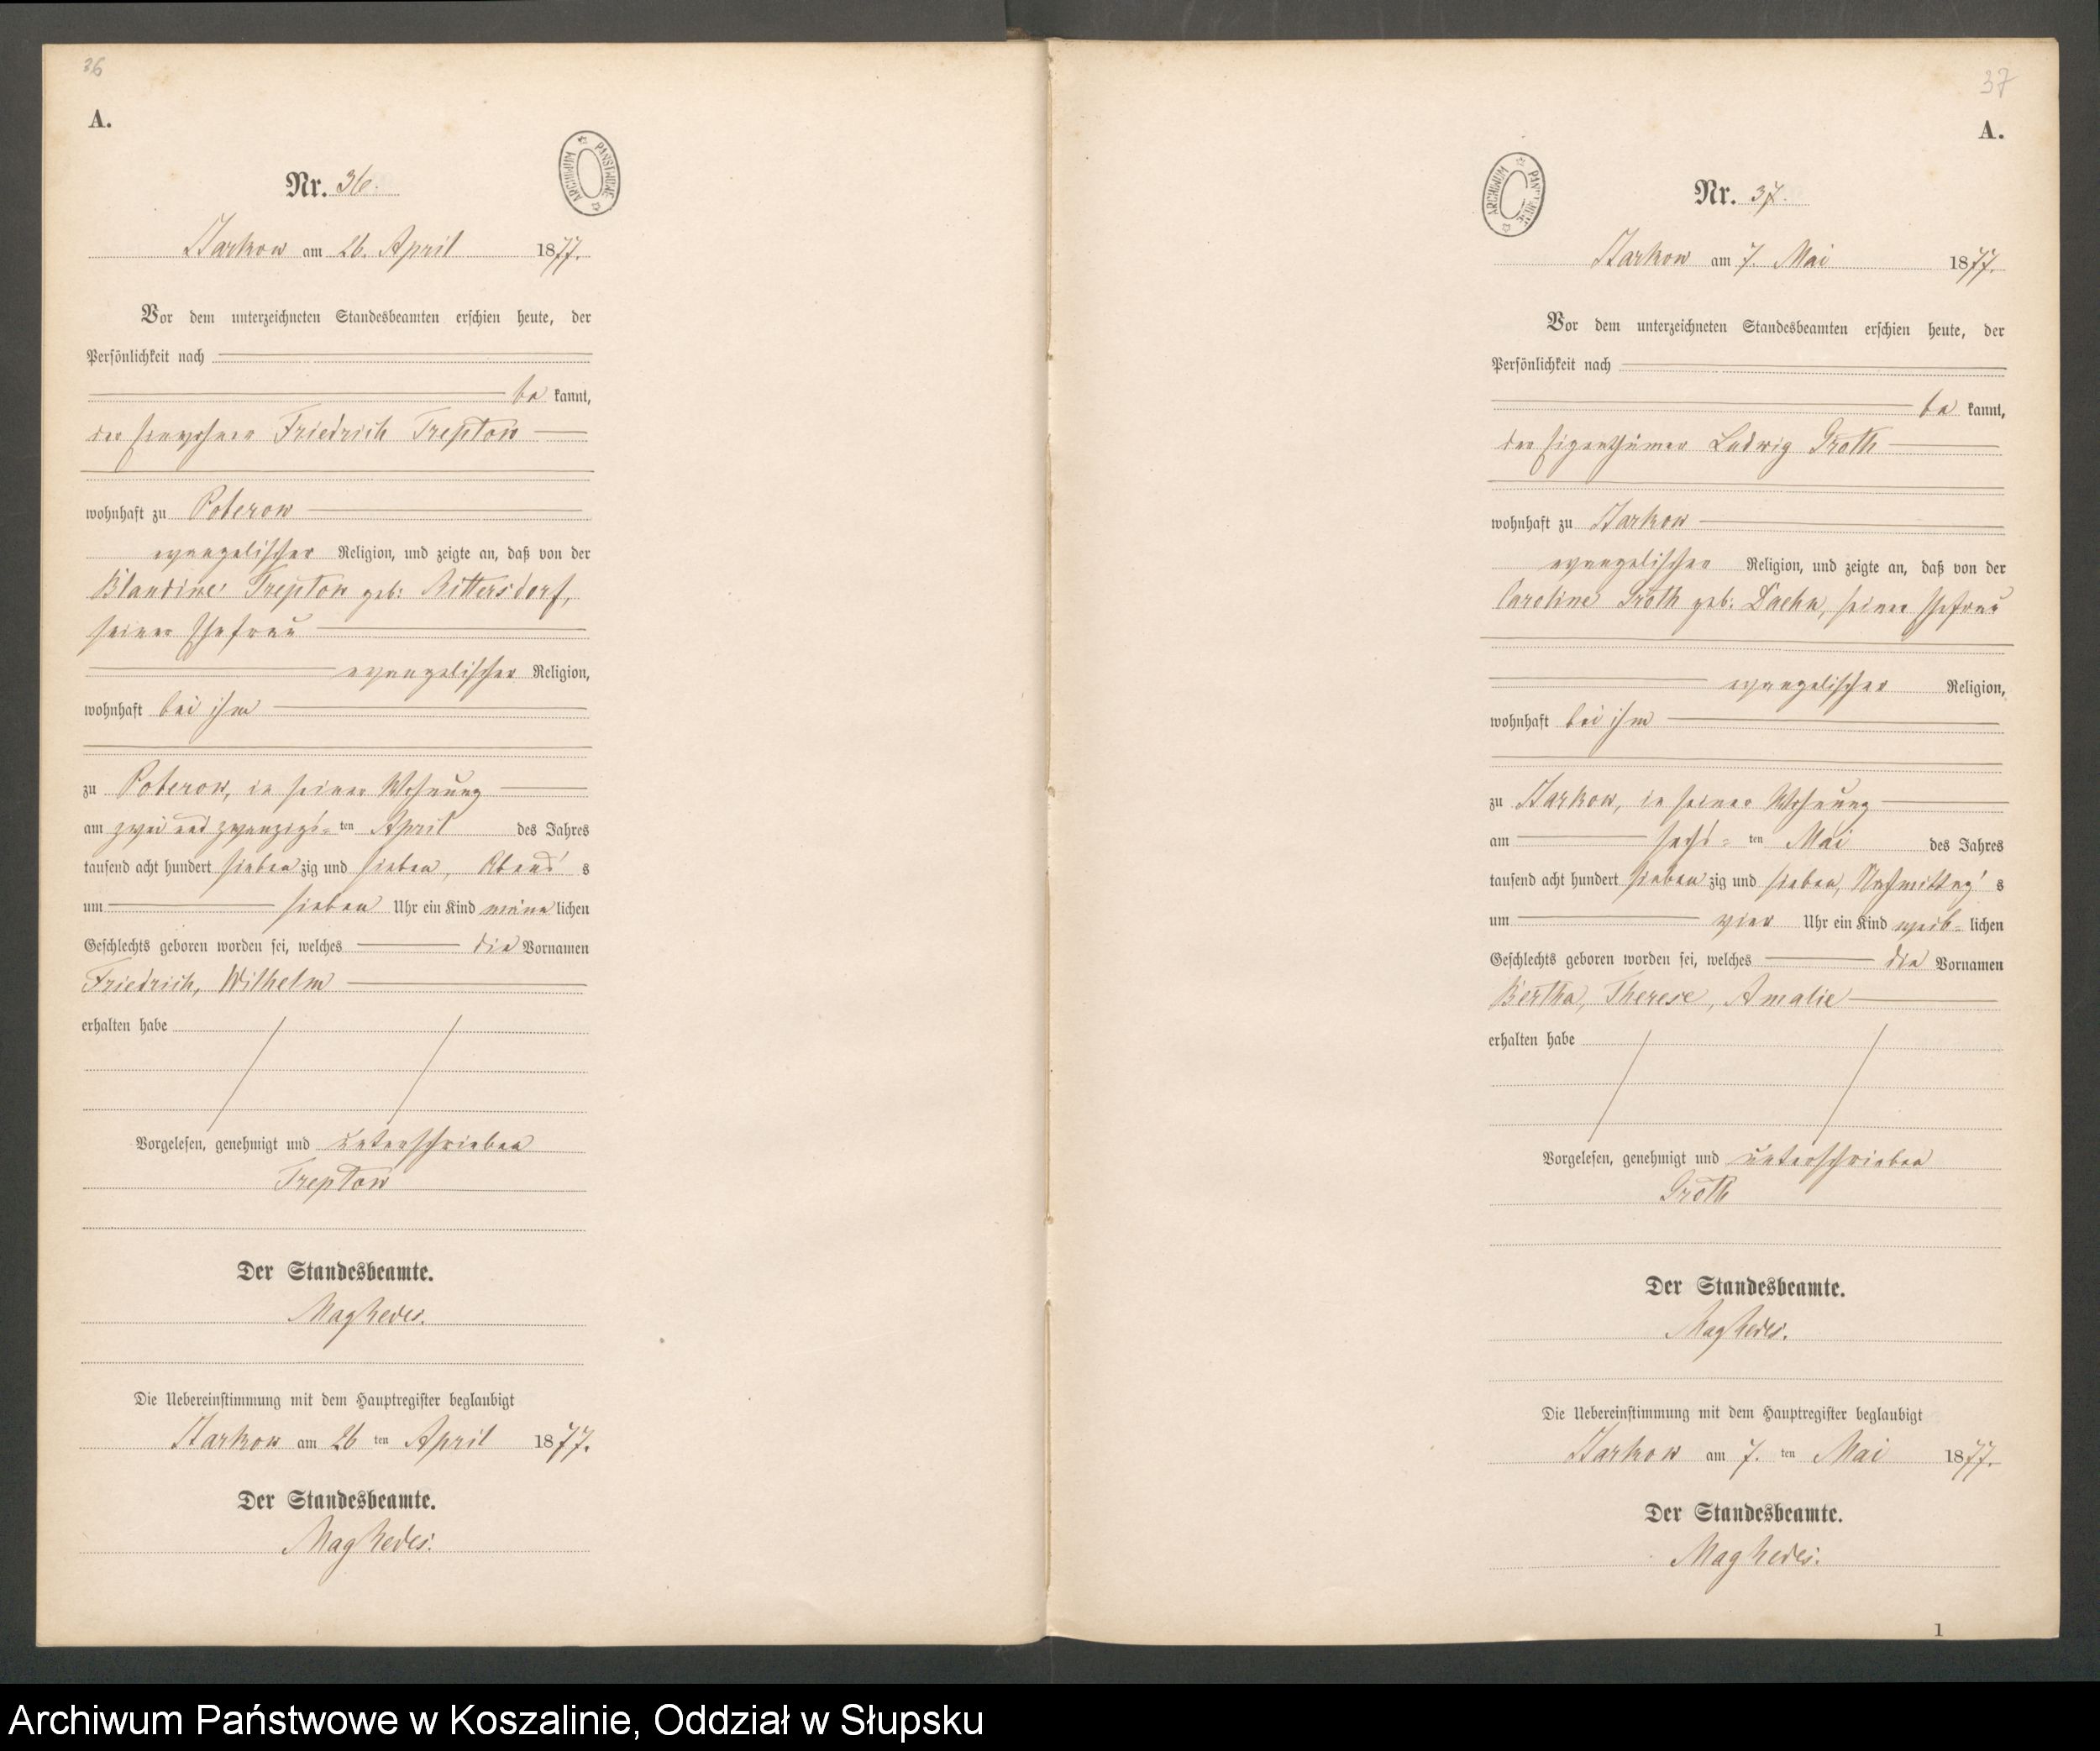 36
A.
ARCHIWUM PAŃSTWOWE
Nr. 36.
Starkow am 26. April 1877.
Vor dem unterzeichneten Standesbeamten erschien heute, der
Persönlichkeit nach
be kannt,
der Einwohner Friedrich Treptow
wohnhaft zu Poberow
evangelischer Religion, und zeigte an, daß von der
Blandine Treptow geb: Rittersdorf,
seiner Ehefrau
evangelischer Religion,
wohnhaft bei ihm
zu Poberow, in seiner Wohnung
am zwei und zwanzigs= ten April des Jahres
tausend acht hundert sieben zig und sieben, Abend s
um sieben Uhr ein Kind männ lichen
Geschlechts geboren worden sei, welches die Vornamen
Friedrich, Wilhelm
erhalten habe
Vorgelesen, genehmigt und unterschrieben
Treptow
Der Standesbeamte.
Die Uebereinstimmung mit dem Hauptregister beglaubigt
Starkow am 26 ten April 1877.
Der Standesbeamte.
37
A.
ARCHIWUM PAŃSTWOWE
Nr. 37.
Starkow am 7. Mai 1877.
Vor dem unterzeichneten Standesbeamten erschien heute, der
Persönlichkeit nach
be kannt,
der Eigenthümer Ludwig Groth
wohnhaft zu Starkow
evangelischer Religion, und zeigte an, daß von der
Caroline Groth geb: Daehn, seiner Ehefrau
evangelischer Religion,
wohnhaft bei ihm
zu Starkow, in seiner Wohnung
am sechs= ten Mai des Jahres
tausend acht hundert sieben zig und sieben, Nachmittag s
um vier Uhr ein Kind weib= lichen
Geschlechts geboren worden sei, welches die Vornamen
Bertha, Therese, Amalie
erhalten habe
Vorgelesen, genehmigt und unterschrieben
Groth
Der Standesbeamte.
Die Uebereinstimmung mit dem Hauptregister beglaubigt
Starkow am 7. ten Mai 1877.
Der Standesbeamte.
1
Archiwum Państwowe w Koszalinie, Oddział w Słupsku